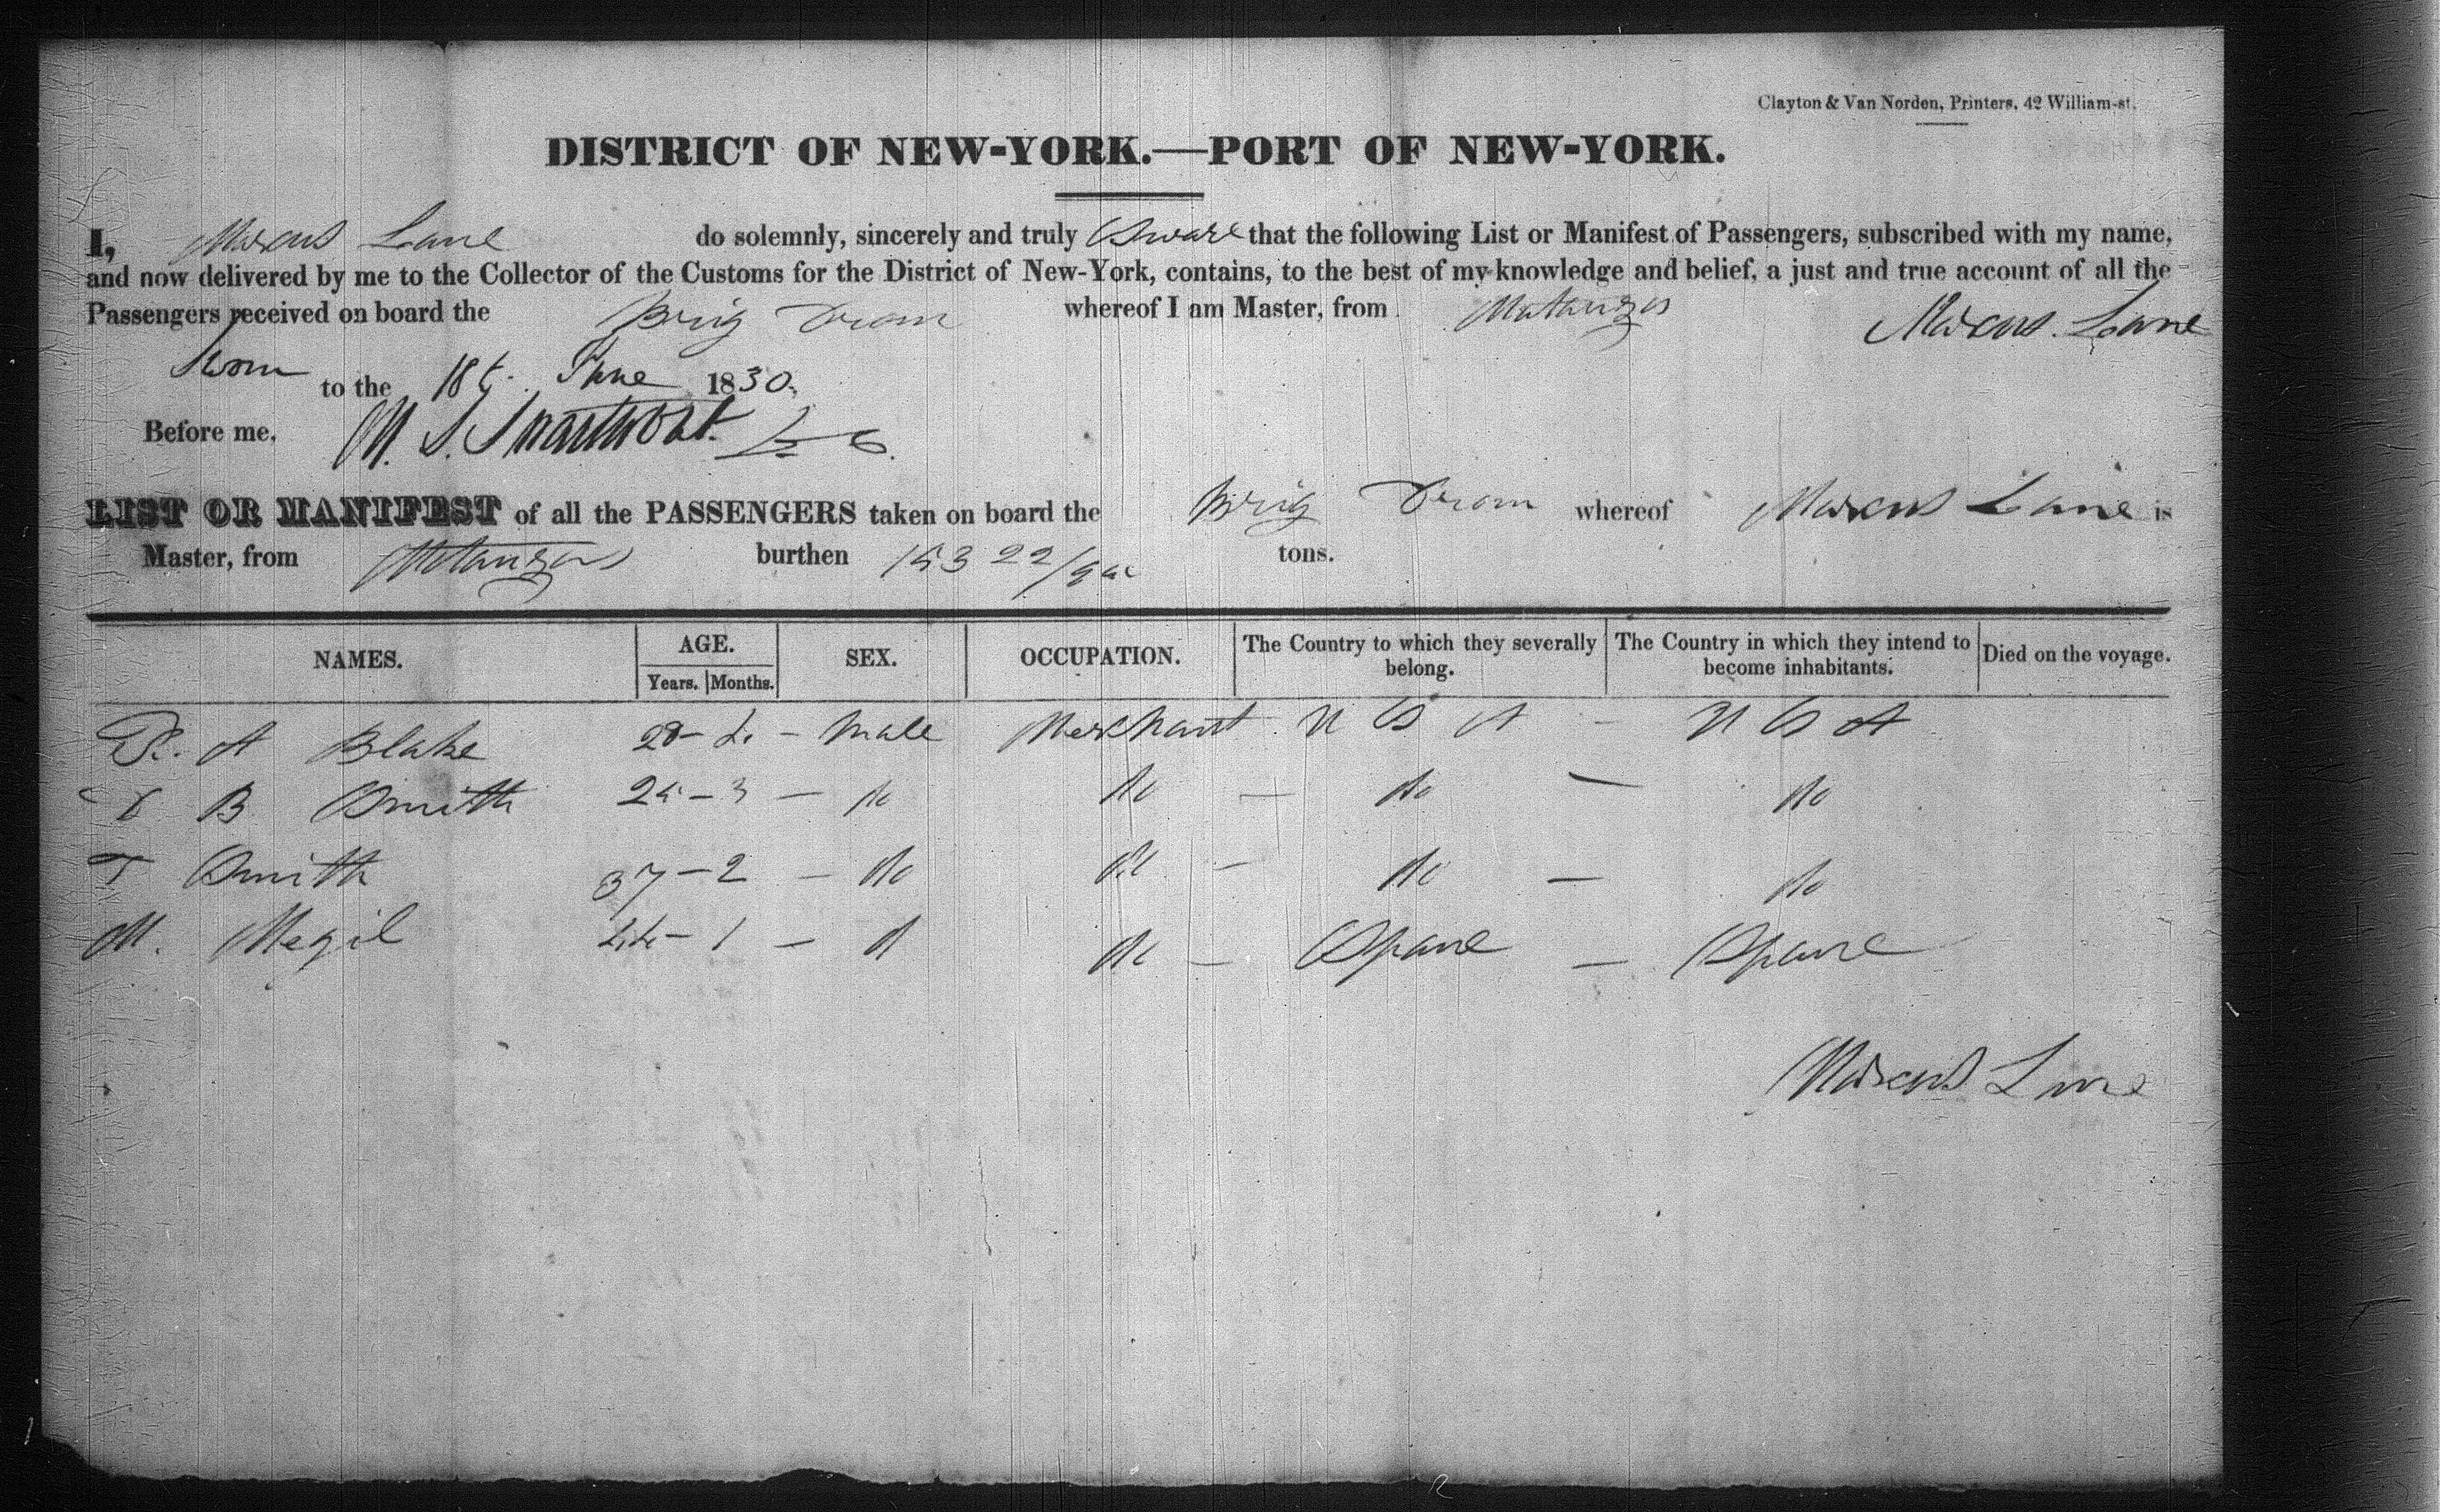 Clayton & Van Norden, Printers, 42 William-st.
DISTRICT OF NEW-YORK.—PORT OF NEW-YORK.
I, Marcus Lane do solemnly, sincerely and truly Sware that the following List or Manifest of Passengers, subscribed with my name,
and now delivered by me to the Collector of the Customs for the District of New-York, contains, to the best of my knowledge and belief, a just and true account of all the
Passengers received on board the Brig whereof I am Master, from Matanzas
Marcus Lane
Sworn to the 18t June 1830.
Before me, M. S. Swartwout
LIST OR MANIFEST of all the PASSENGERS taken on board the Brig whereof Marcus Lane is
Master, from Matanzas burthen tons.
NAMES. AGE. SEX. OCCUPATION. The Country to which they severally belong. The Country in which they intend to become inhabitants. Died on the voyage.
Years. Months.
R. A Blake 28 - 4 - Male Merchant U S A - U S A
B Smith 25 - 3 - do do - do - do
T Smith 37 - 2 - do do - do - do
M. Megil 44 - 1 - d do - Spane - Spane
Marcus Lane